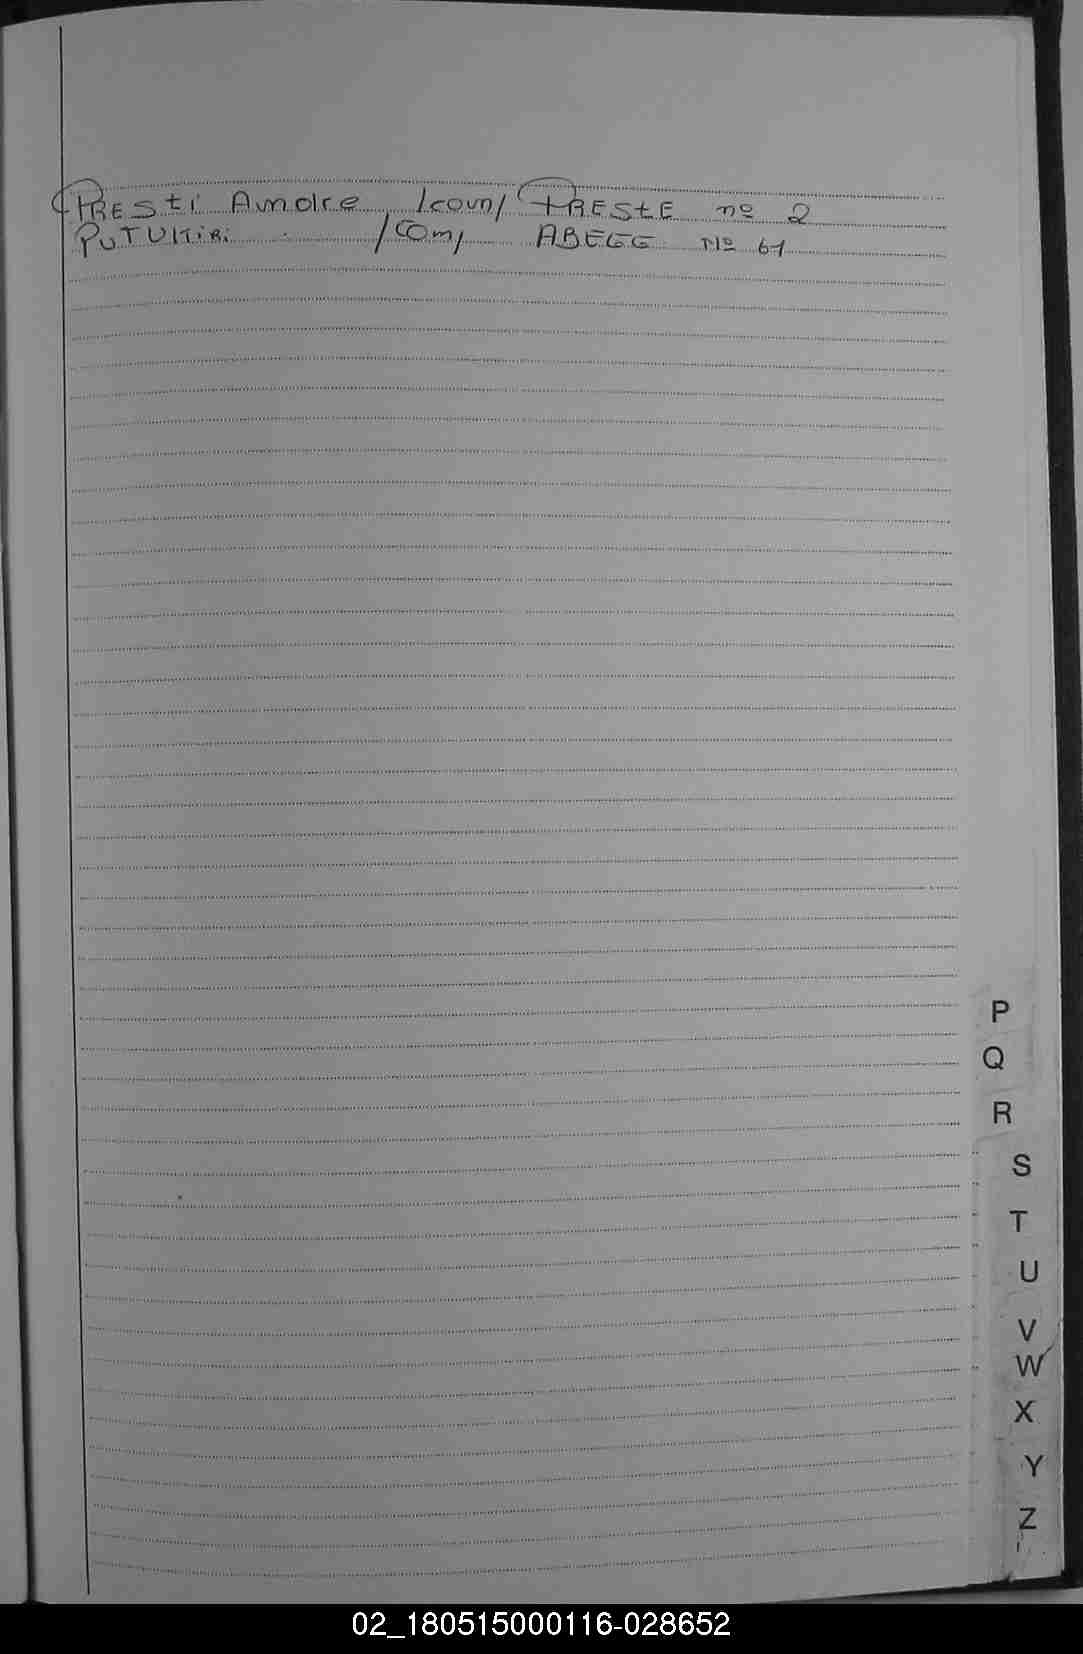 PRESti Amdre /com/ PRESTE nº 2
PUTUMiRi /com/ ABEGG Nº 61
P
Q
R
S
T
U
V
W
X
Y
Z
02_180515000116-028652